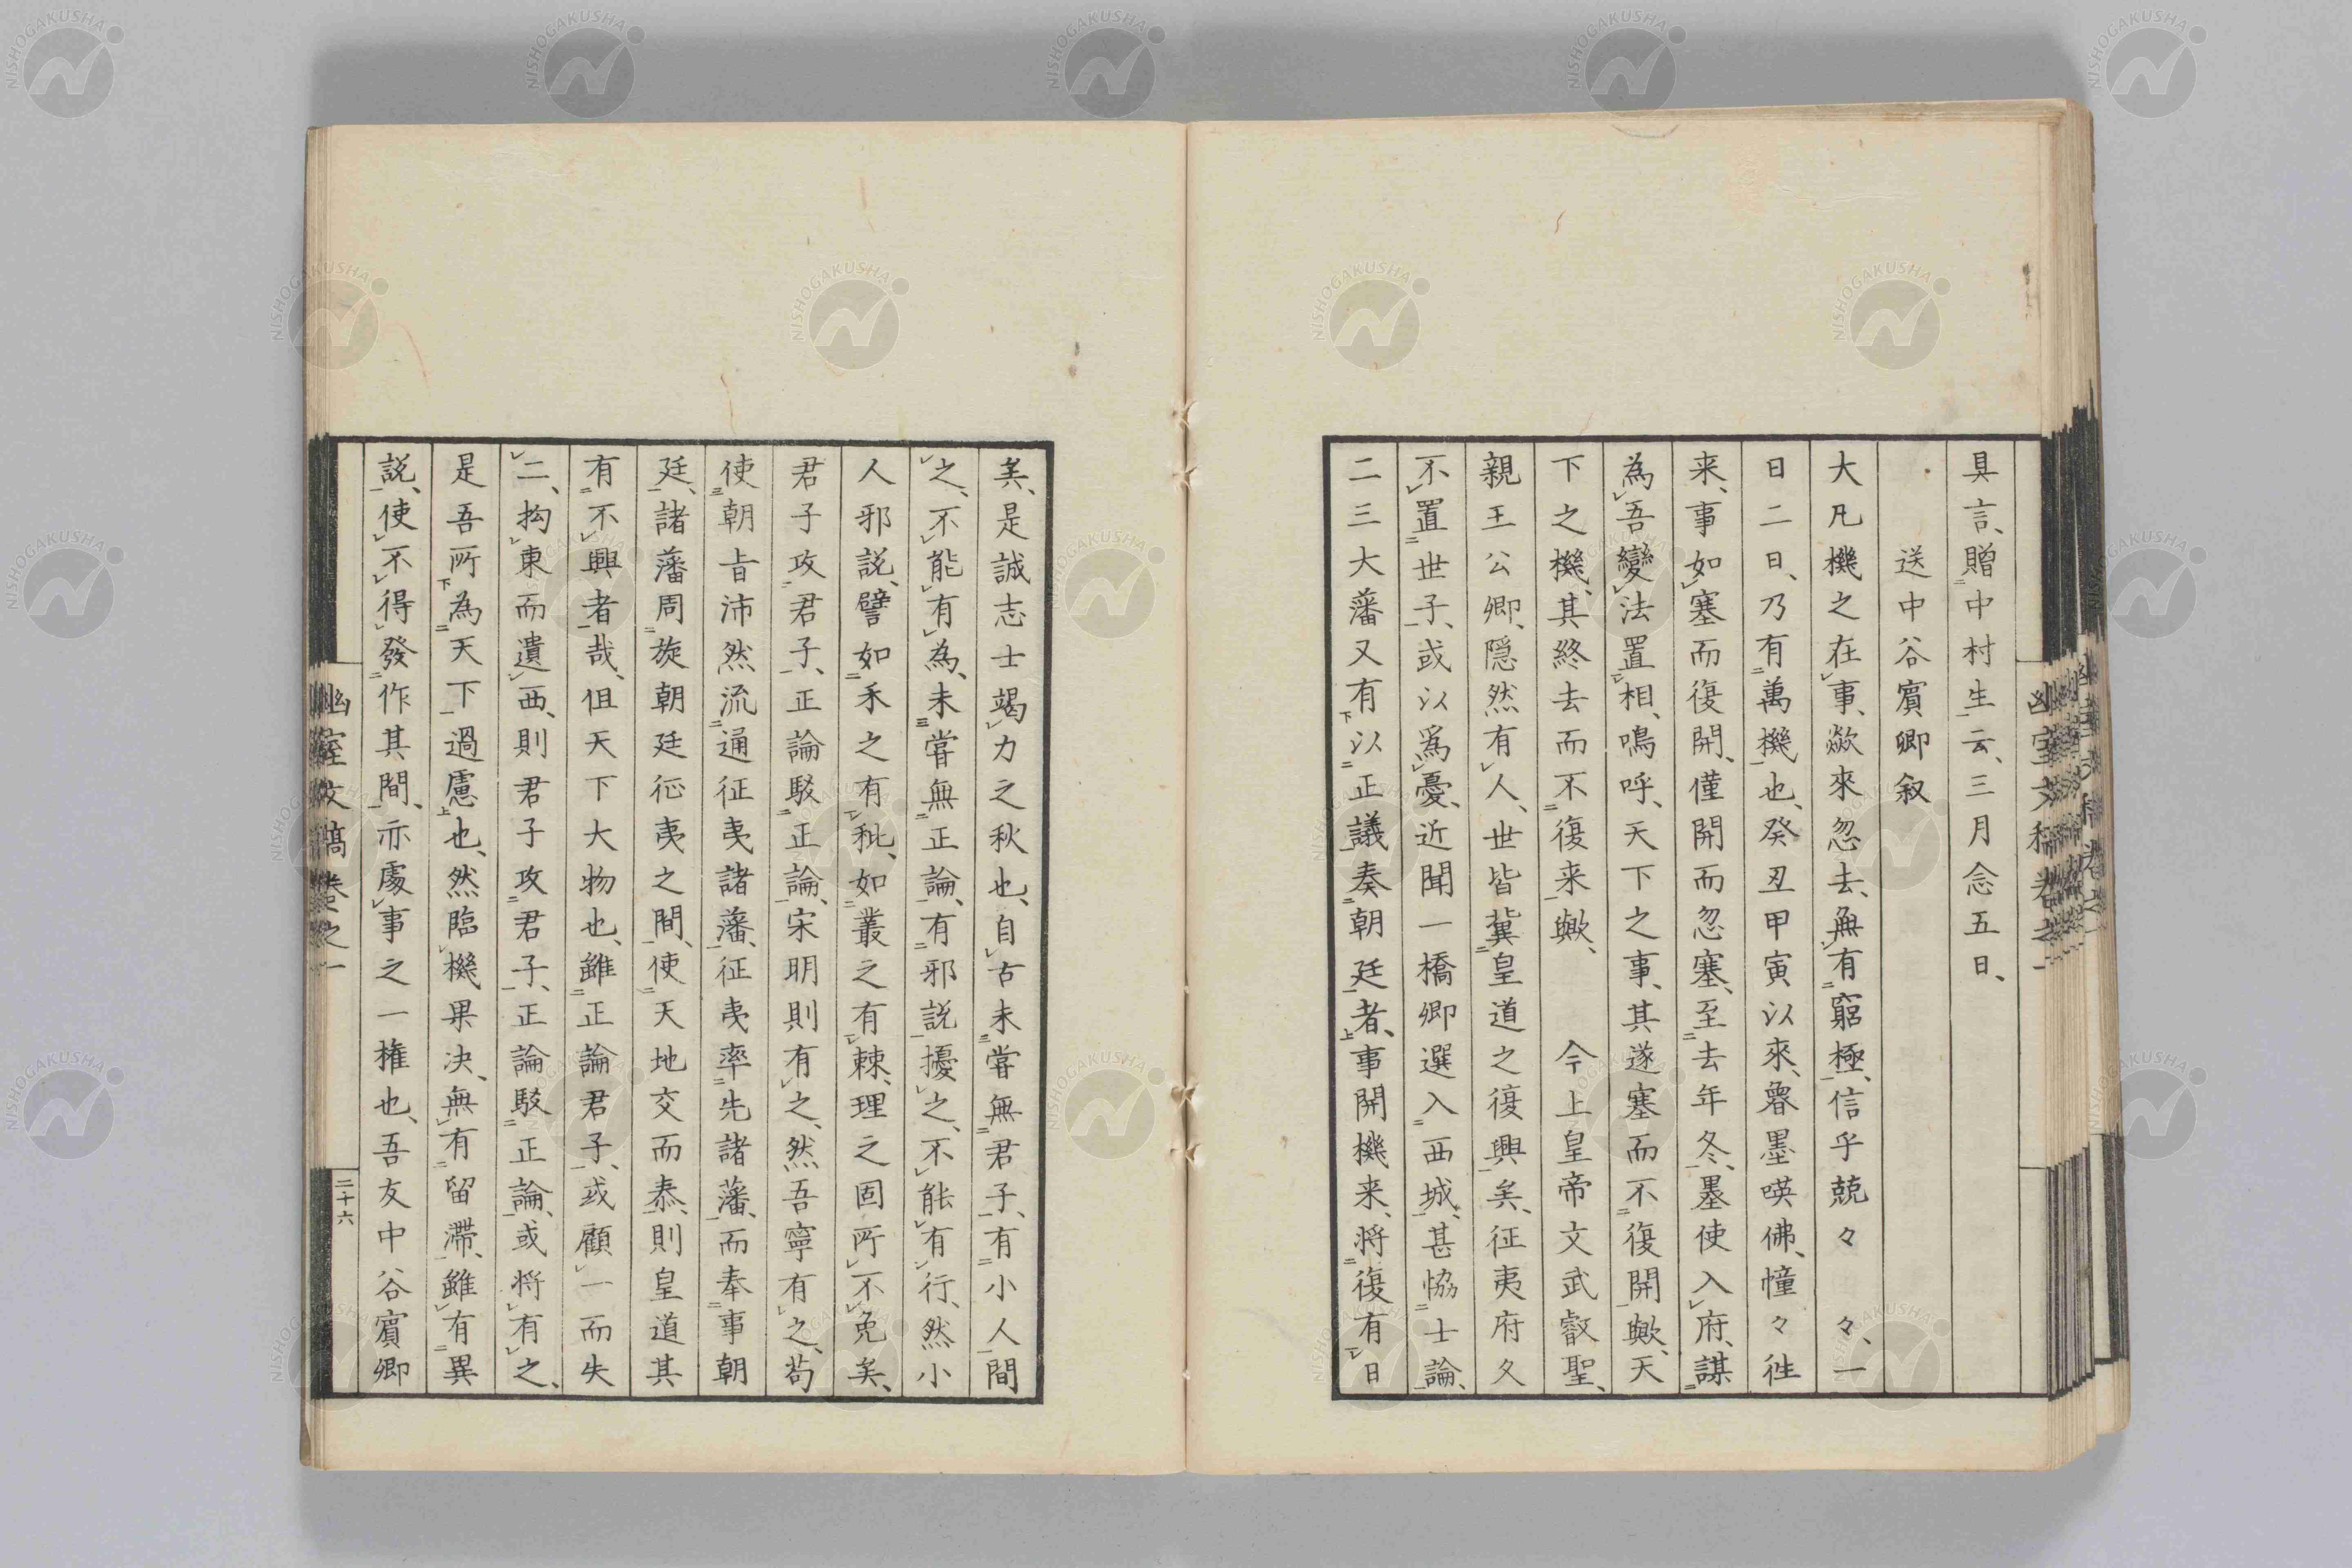 具言、贈中村生云、三月念五日、
送中谷賓卿叙
大凡機之在事、歘來忽去、無有窮極、信乎兢々々々、一
日二日、乃有萬機也、癸丑甲寅以來、魯墨暎佛、憧々徃
来、事如塞而復開、僅開而忽塞、至去年冬、墨使入府、謀
為吾變法置相、鳴呼、天下之事、其遂塞而不復開歟、天
下之機、其終去而不復来歟、今上皇帝文武叡聖、
親王公卿、隠然有人、世皆冀皇道之復興矣、征夷府久
不置世子、或以爲憂、近聞一橋卿選入西城、甚恊士論、
二三大藩又有以正議奏朝廷者、事開機来、将復有日
矣、是誠志士竭力之秋也、自古未甞無君子、有小人間
之、不能有為、未甞無正論、有邪説擾之、不能有行、然小
人邪説、譬如禾之有秕、如叢之有棘、理之固所不免矣、
君子攻君子、正論駁正論、宋明則有之、然吾寧有之、苟
使朝旨沛然流通征夷諸藩、征夷率先諸藩、而奉事朝
廷、諸藩周旋朝廷征夷之間、使天地交而泰、則皇道其
有不興者哉、但天下大物也、雖正論君子、或顧一而失
二、抅東而遺西、則君子攻君子、正論駁正論、或将有之、
是吾所為天下過慮也、然臨機果决、無有留滞、雖有異
説、使不得發作其間、亦處事之一権也、吾友中谷賓卿
幽室文稿卷之一
二十六